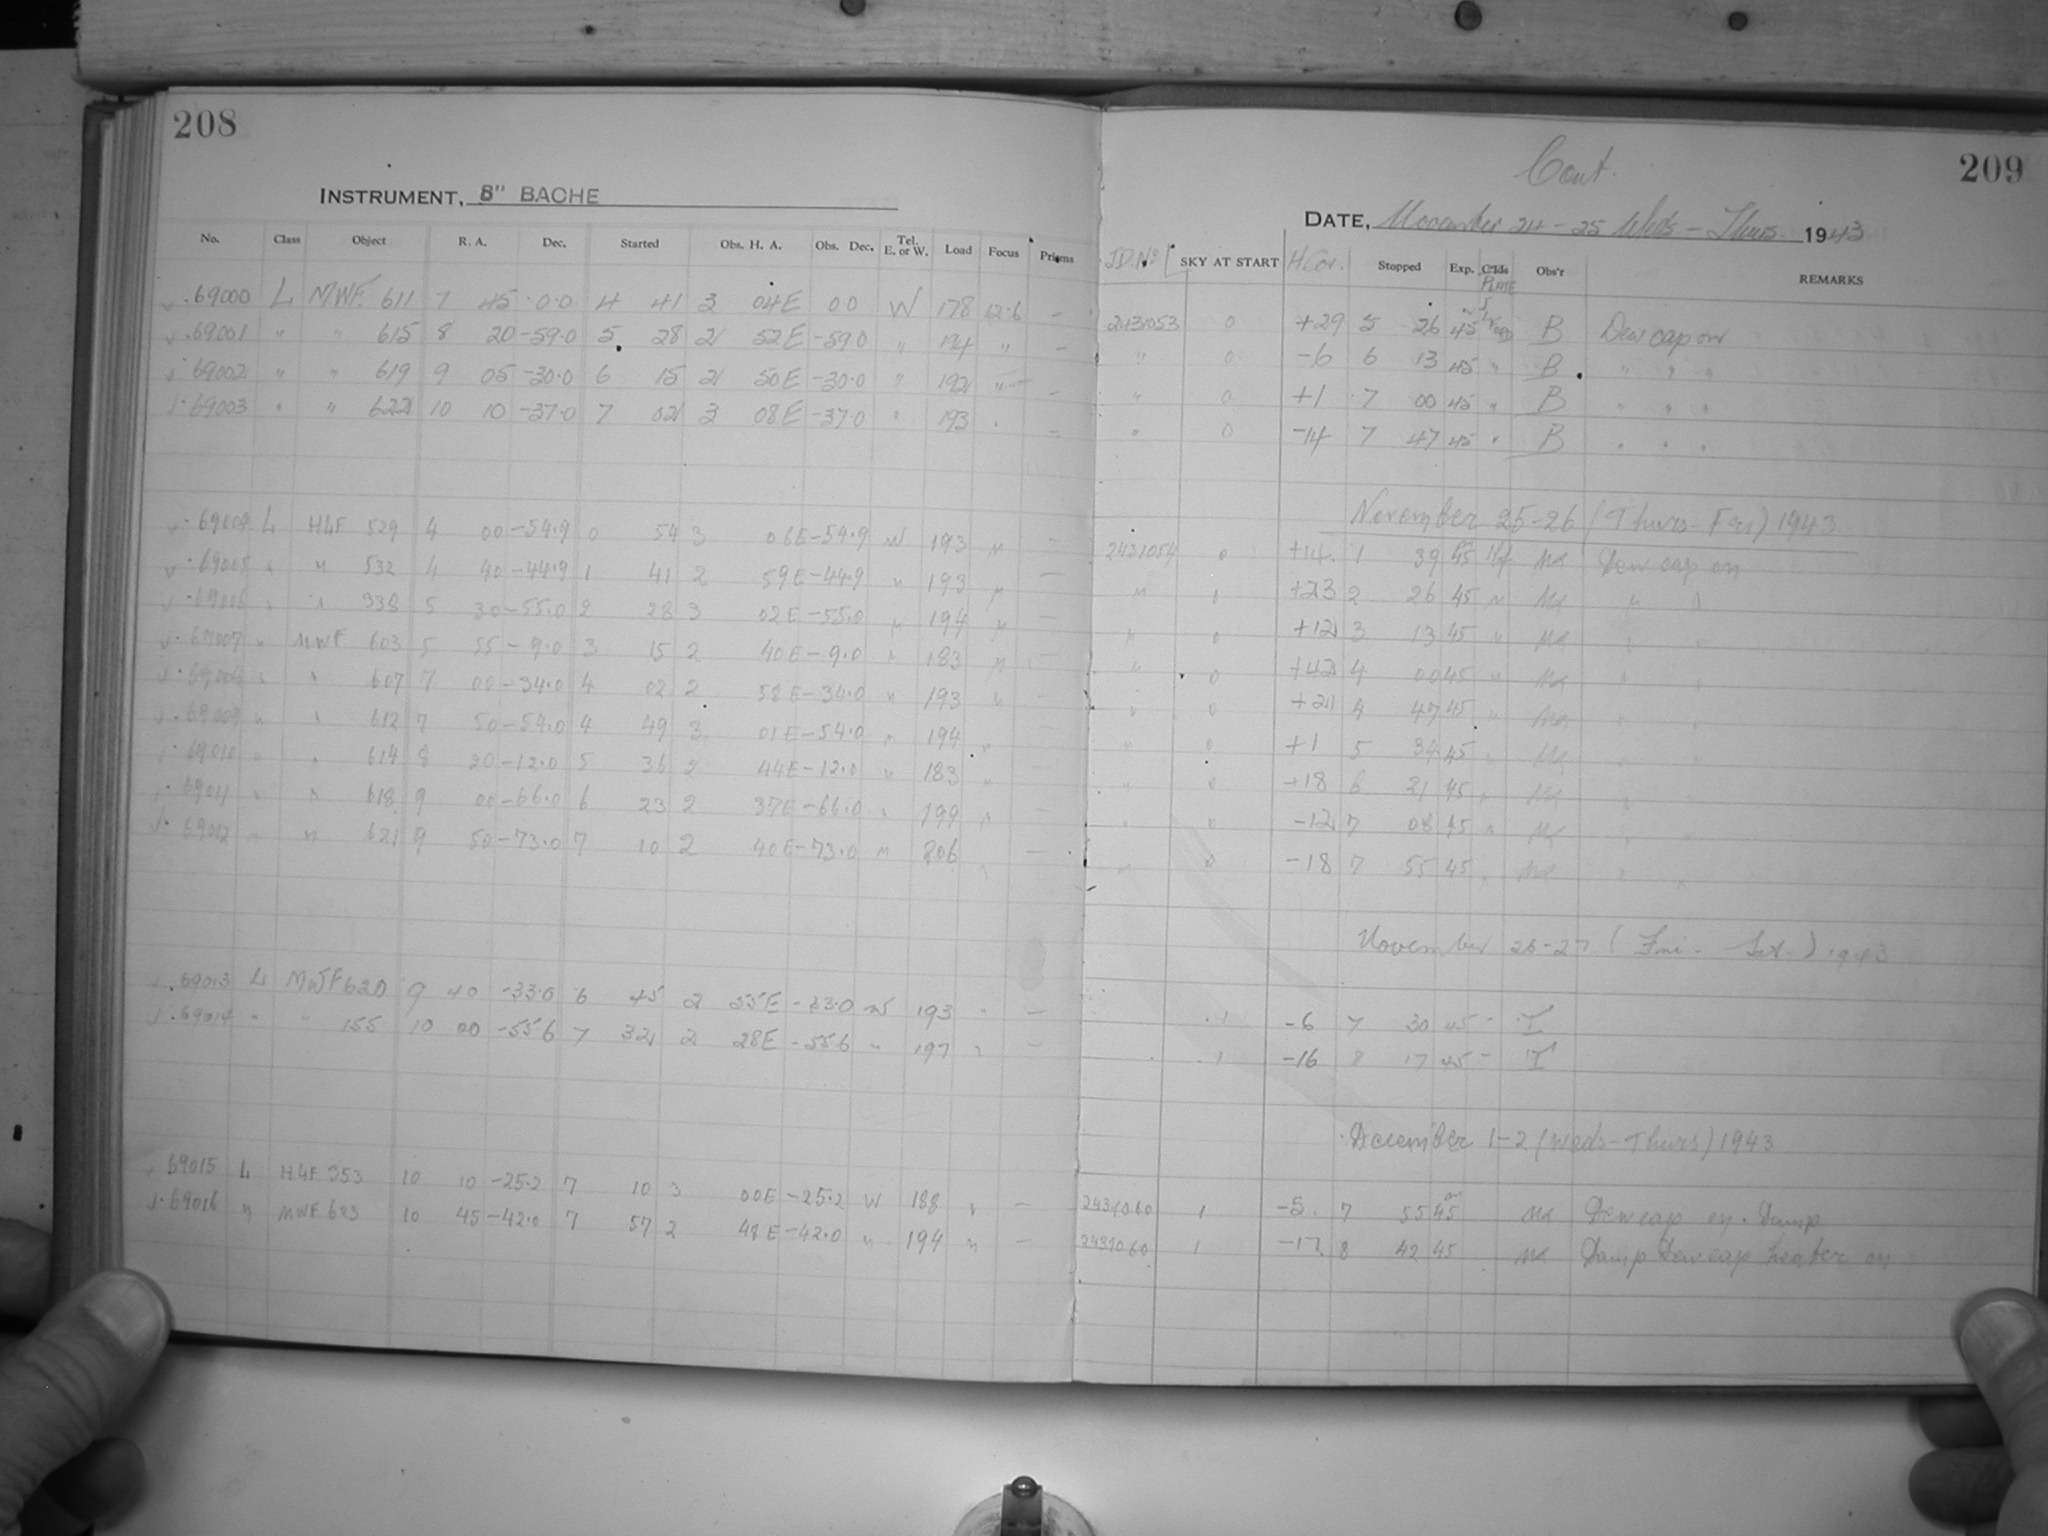 208
INSTRUMENT, 8" BACHE
No. Class Object R. A. Dec. Started Obs. H. A. Obs. Dec. Tel. E. or W. Load Focus Prisms
69000 L MWF. 611 7 45 0.0 4 41 3 04E 0.0 W 178 12.6 -
69001 " " 615 8 20 -59.0 5 28 2 52E -59.0 " 194 " -
69002 " " 619 9 05 -30.0 6 15 2 50E -30.0 " 192 " -
69003 " " 622 10 10 -37.0 7 02 3 08E -37.0 " 193 " -
69004 L H4F 529 4 00 -54.9 0 54 3 06E -54.9 W 193 " -
69005 " " 532 4 40 -44.9 1 41 2 59E -44.9 " 193 " -
69006 " " 338 5 30 -55.0 2 28 3 02E -55.0 " 194 " -
69007 " MWF 603 5 55 -9.0 3 15 2 40E -9.0 " 183 " -
69008 " " 607 7 00 -34.0 4 02 2 58E -34.0 " 193 " -
69009 " " 612 7 50 -54.0 4 49 3 01E -54.0 " 194 " -
69010 " " 614 8 20 -12.0 5 36 2 44E -12.0 " 183 " -
69011 " " 618 9 00 -66.0 6 23 2 37E -66.0 " 199 " -
69012 " " 621 9 50 -73.0 7 10 2 40E -73.0 " 206 " -
69013 L MWF 620 9 40 -33.0 6 45 2 55E -33.0 W 193 " -
69014 " " 155 10 00 -55.6 7 32 2 28E -55.6 " 197 " -
69015 L H4F 353 10 10 -25.2 7 10 3 00E -25.2 W 188 " -
69016 " MWF 623 10 45 -42.0 7 57 2 48E -42.0 " 194 " -
Cont. 209
DATE, November 24-25 Weds-Thurs. 1943
J.D. No SKY AT START H.Cor. Stopped Exp. PLATE Obs'r REMARKS
2431053 0 +29 5 26 45 B Dew cap on
" 0 -6 6 13 45 " B " " "
" 0 +1 7 00 45 " B " " "
" 0 -14 7 47 45 " B " " "
November 25-26 (Thurs-Fri) 1943
2431054 0 +14 1 39 45 Dew cap on
" 0 +23 2 26 45 " " "
" 0 +12 3 13 45 " " "
" 0 +42 4 00 45 " " "
" 0 +21 4 47 45 " " "
" 0 +1 5 34 45 " " "
" 0 +18 6 21 45 " " "
" 0 -12 7 08 45 " " "
" 0 -18 7 55 45 " " "
November 26-27 (Fri-Sat) 1943
1 -6 7 30 45 - I
1 -16 8 17 45 - I
December 1-2 (Weds-Thurs) 1943
2431060 1 -5 7 55 45 Dew cap on. Damp
2431060 1 -17 8 42 45 Damp Dew cap heater on